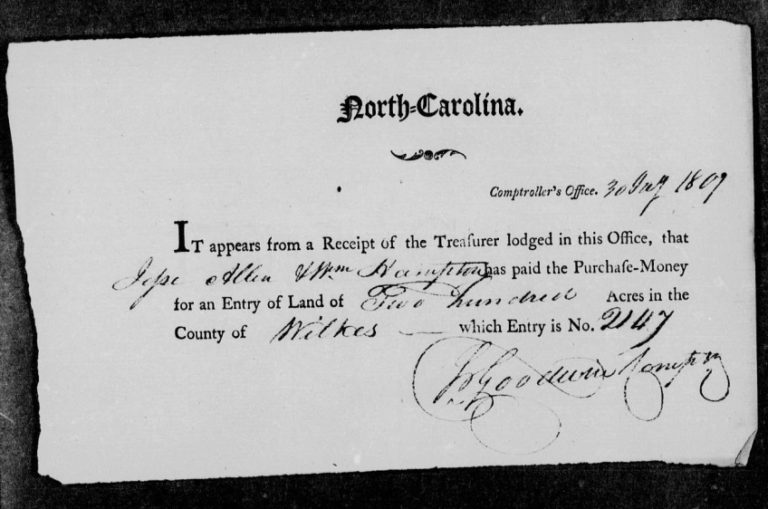 North-Carolina.
Comptroller's Office. 30 Jany 1809
IT appears from a Receipt of the Treaſurer lodged in this Office, that
Jeſse Allen & Wm Hampton has paid the Purchaſe-Money
for an Entry of Land of Two hundred Acres in the
County of Wilkes — which Entry is No. 2147
Goodwin Compt